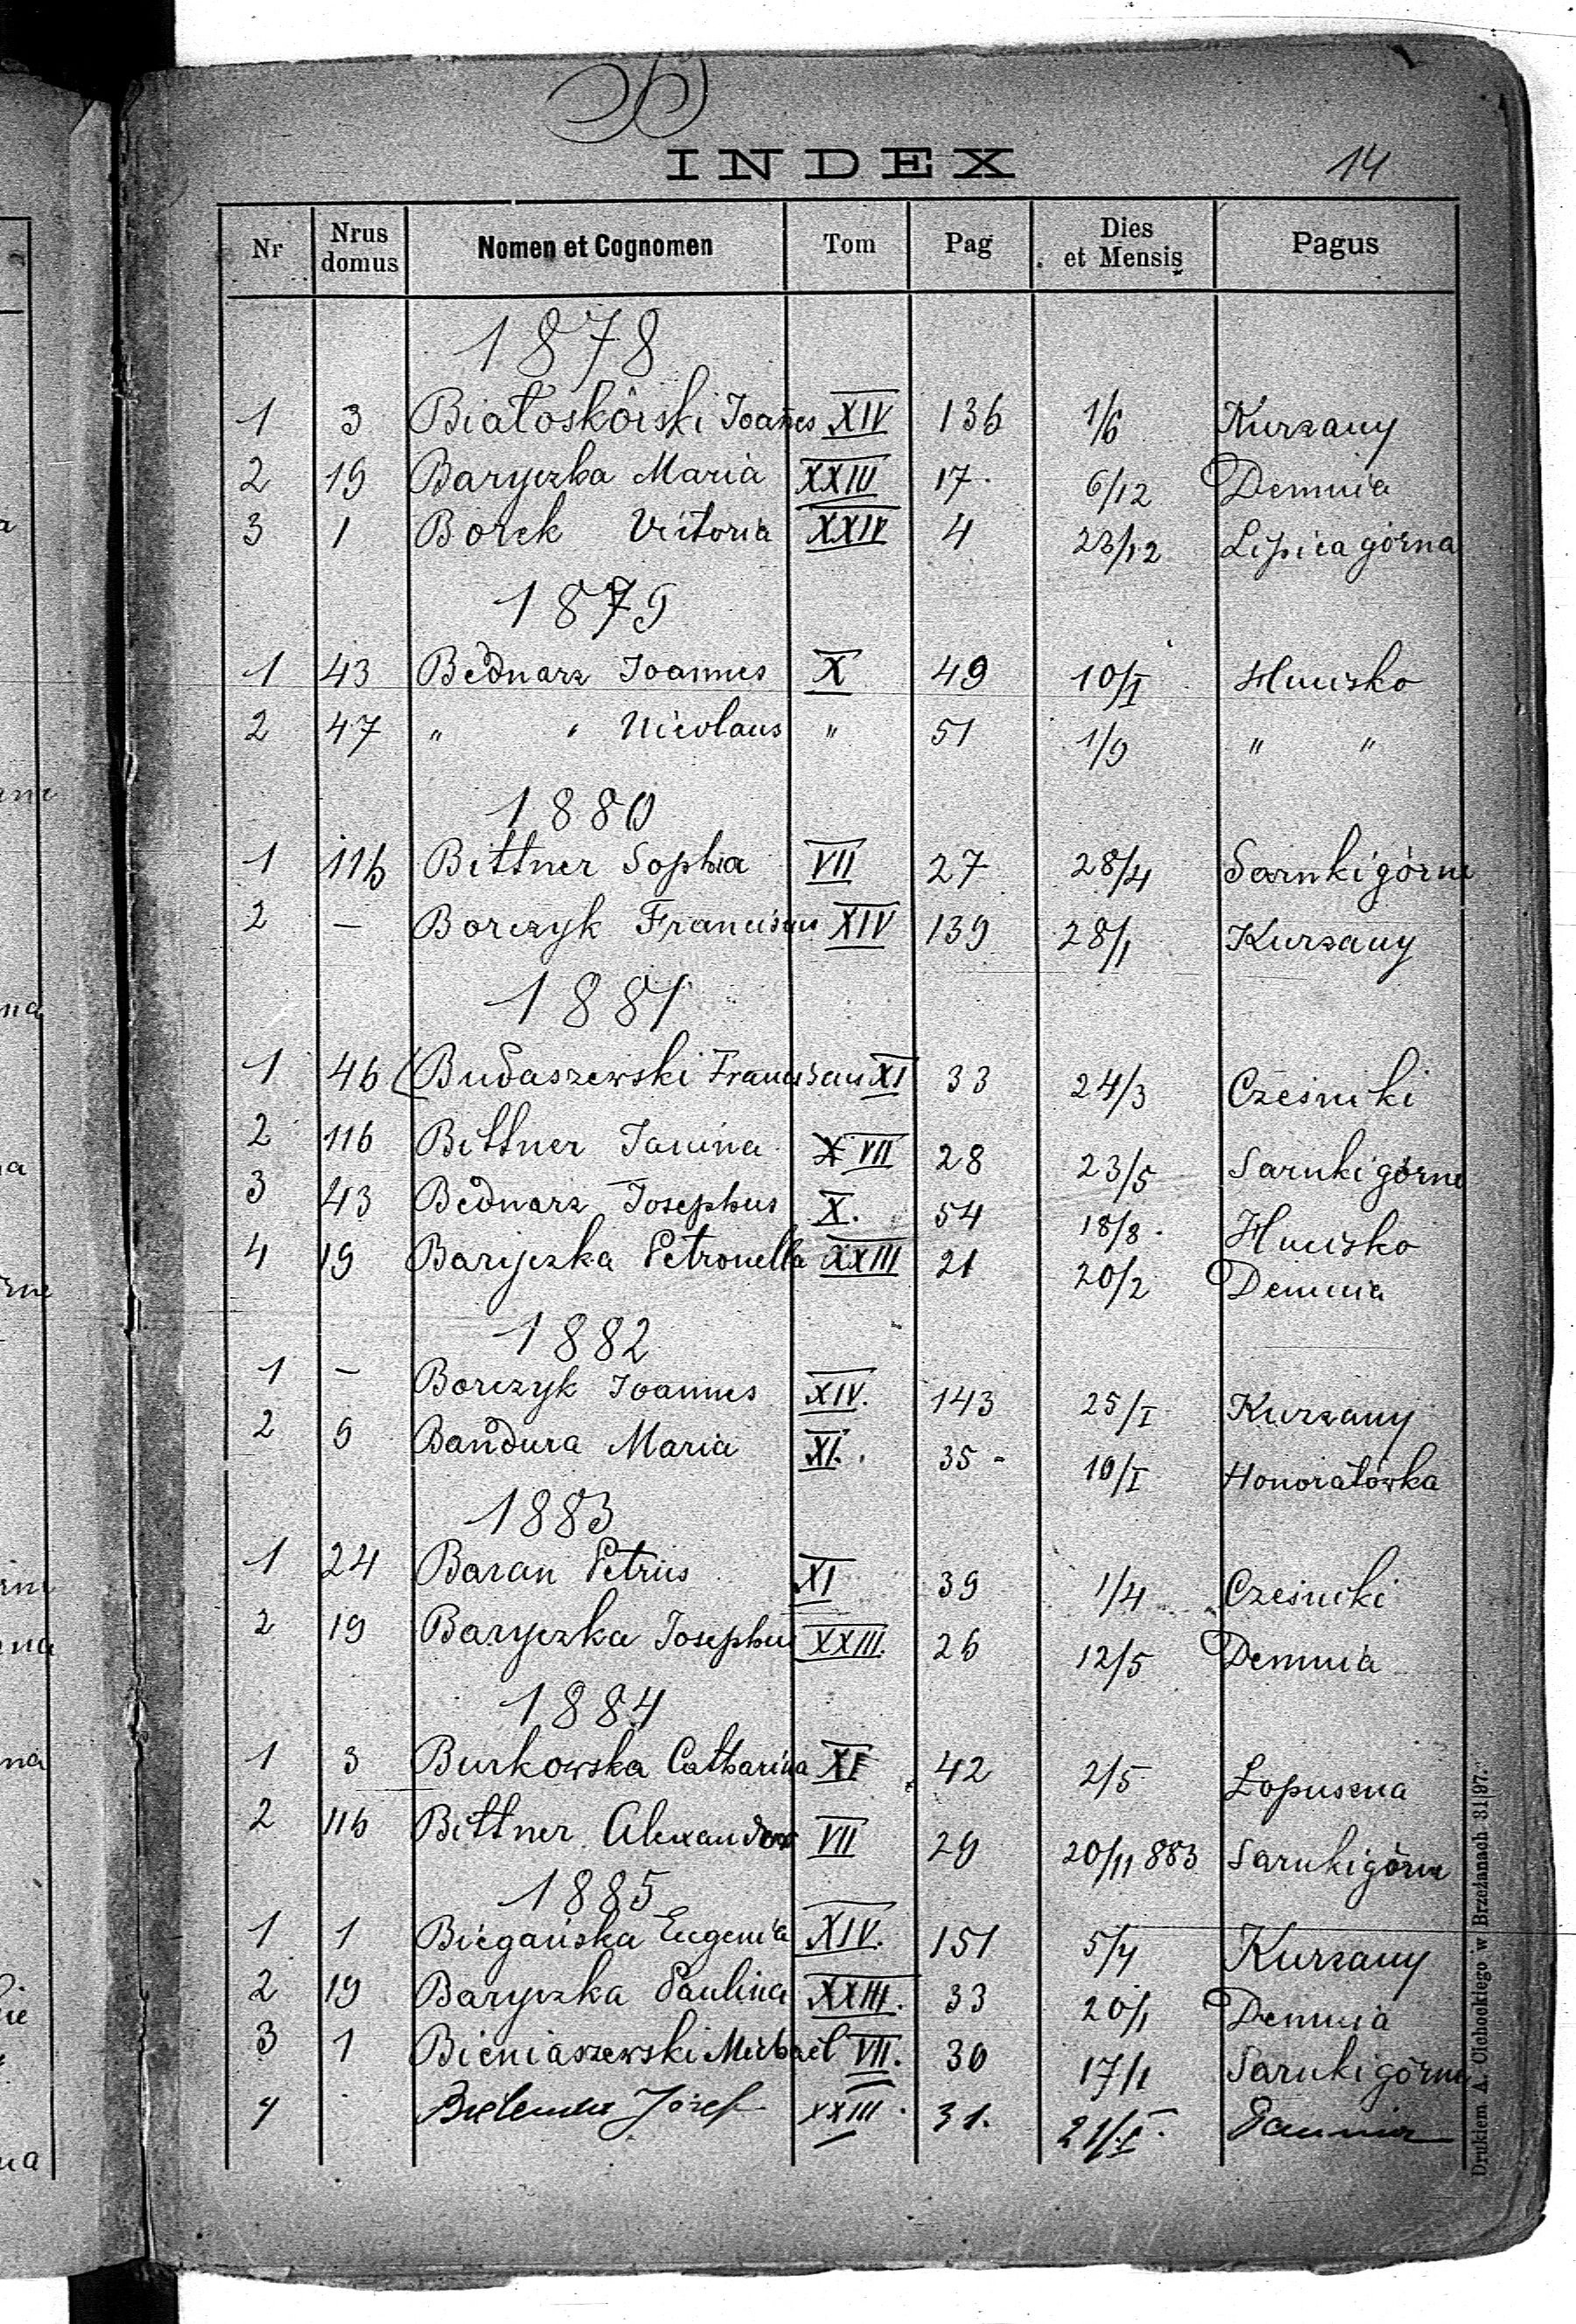 B
INDEX 14
Nr Nrus domus Nomen et Cognomen Tom Pag Dies et Mensis Pagus
1878
1 3 Białoskórski Joannes XIV 136 1/6 Kurzany
2 19 Baryczka Maria XXIII 17. 6/12 Demnia
3 1 Borek Victoria XXIV 4 23/12 Lipica górna
1879
1 43 Bednarz Joannes X 49 10/I Hucisko
2 47 " " Nicolaus " 51 1/9 " "
1880
1 116 Bittner Sophia VII 27 28/4 Sarnki górne
2 – Borczyk Franciscus XIV 139 28/1 Kurzany
1881
1 46 Budaszewski Franciscus XI 33 24/3 Cześniki
2 116 Bittner Janina VII 28 23/5 Sarnki górne
3 43 Bednarz Josephus X. 54 18/8. Hucisko
4 19 Baryczka Petronella XXIII 21 20/2 Demnia
1882
1 – Borczyk Joannes XIV. 143 25/I Kurzany
2 9 Bandura Maria XI. 35 - 10/I Honoratówka
1883
1 24 Baran Petrus XI 39 1/4 Cześniki
2 19 Baryczka Josephus XXIII. 26 12/5 Demnia
1884
1 3 Burkowska Catharina XI 42 2/5 Łopuszna
2 116 Bittner Alexander VII 29 20/11 883 Sarnki górne
1885
1 1 Biegańska Eugenia XIV. 151 5/4 Kurzany
2 19 Baryczka Paulina XXIII. 33 20/1 Demnia
3 1 Bieniaszewski Michael VII. 30 17/1 Sarnki górne
4 Józef XXIII. 31. 21/I.
Drukiem A. Olohockiego w Brzeżanach 31|97.